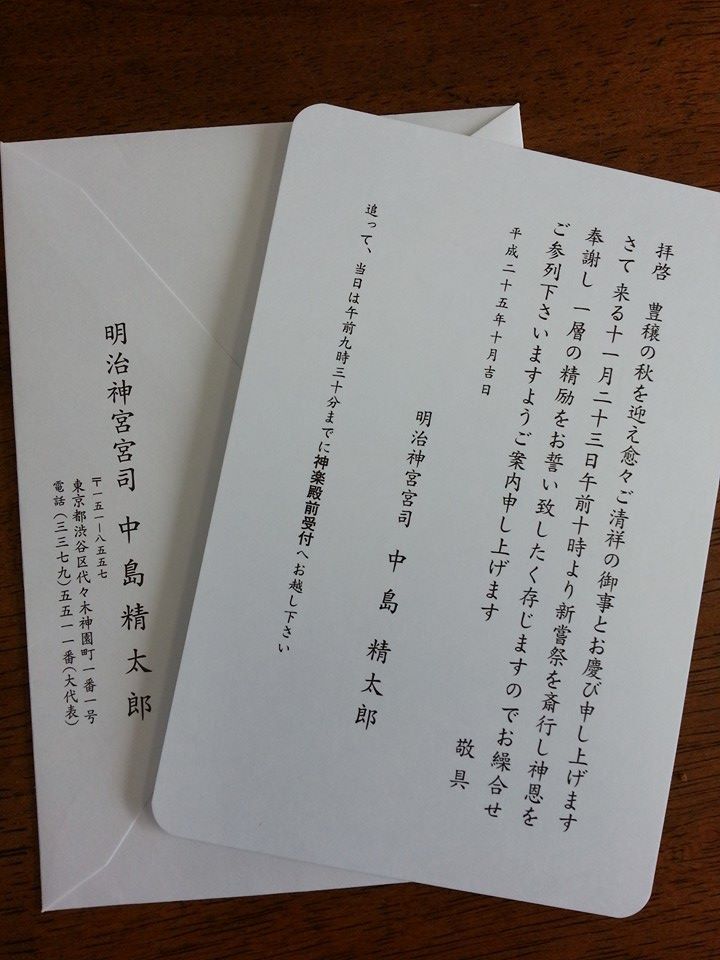 拝啓 豊穣の秋を迎え愈々ご清祥の御事とお慶び申し上げます
さて 来る十一月二十三日午前十時より新嘗祭を斎行し神恩を
奉謝し 一層の精励をお誓い致したく存じますのでお繰合せ
ご参列下さいますようご案内申し上げます
敬具
平成二十五年十月吉日
明治神宮宮司 中島精太郎
追って、当日は午前九時三十分までに神楽殿前受付へお越し下さい
明治神宮宮司 中島精太郎
〒一五一ー八五五七
東京都渋谷区代々木神園町一番一号
電話(三三七九)五五一一番(大代表)